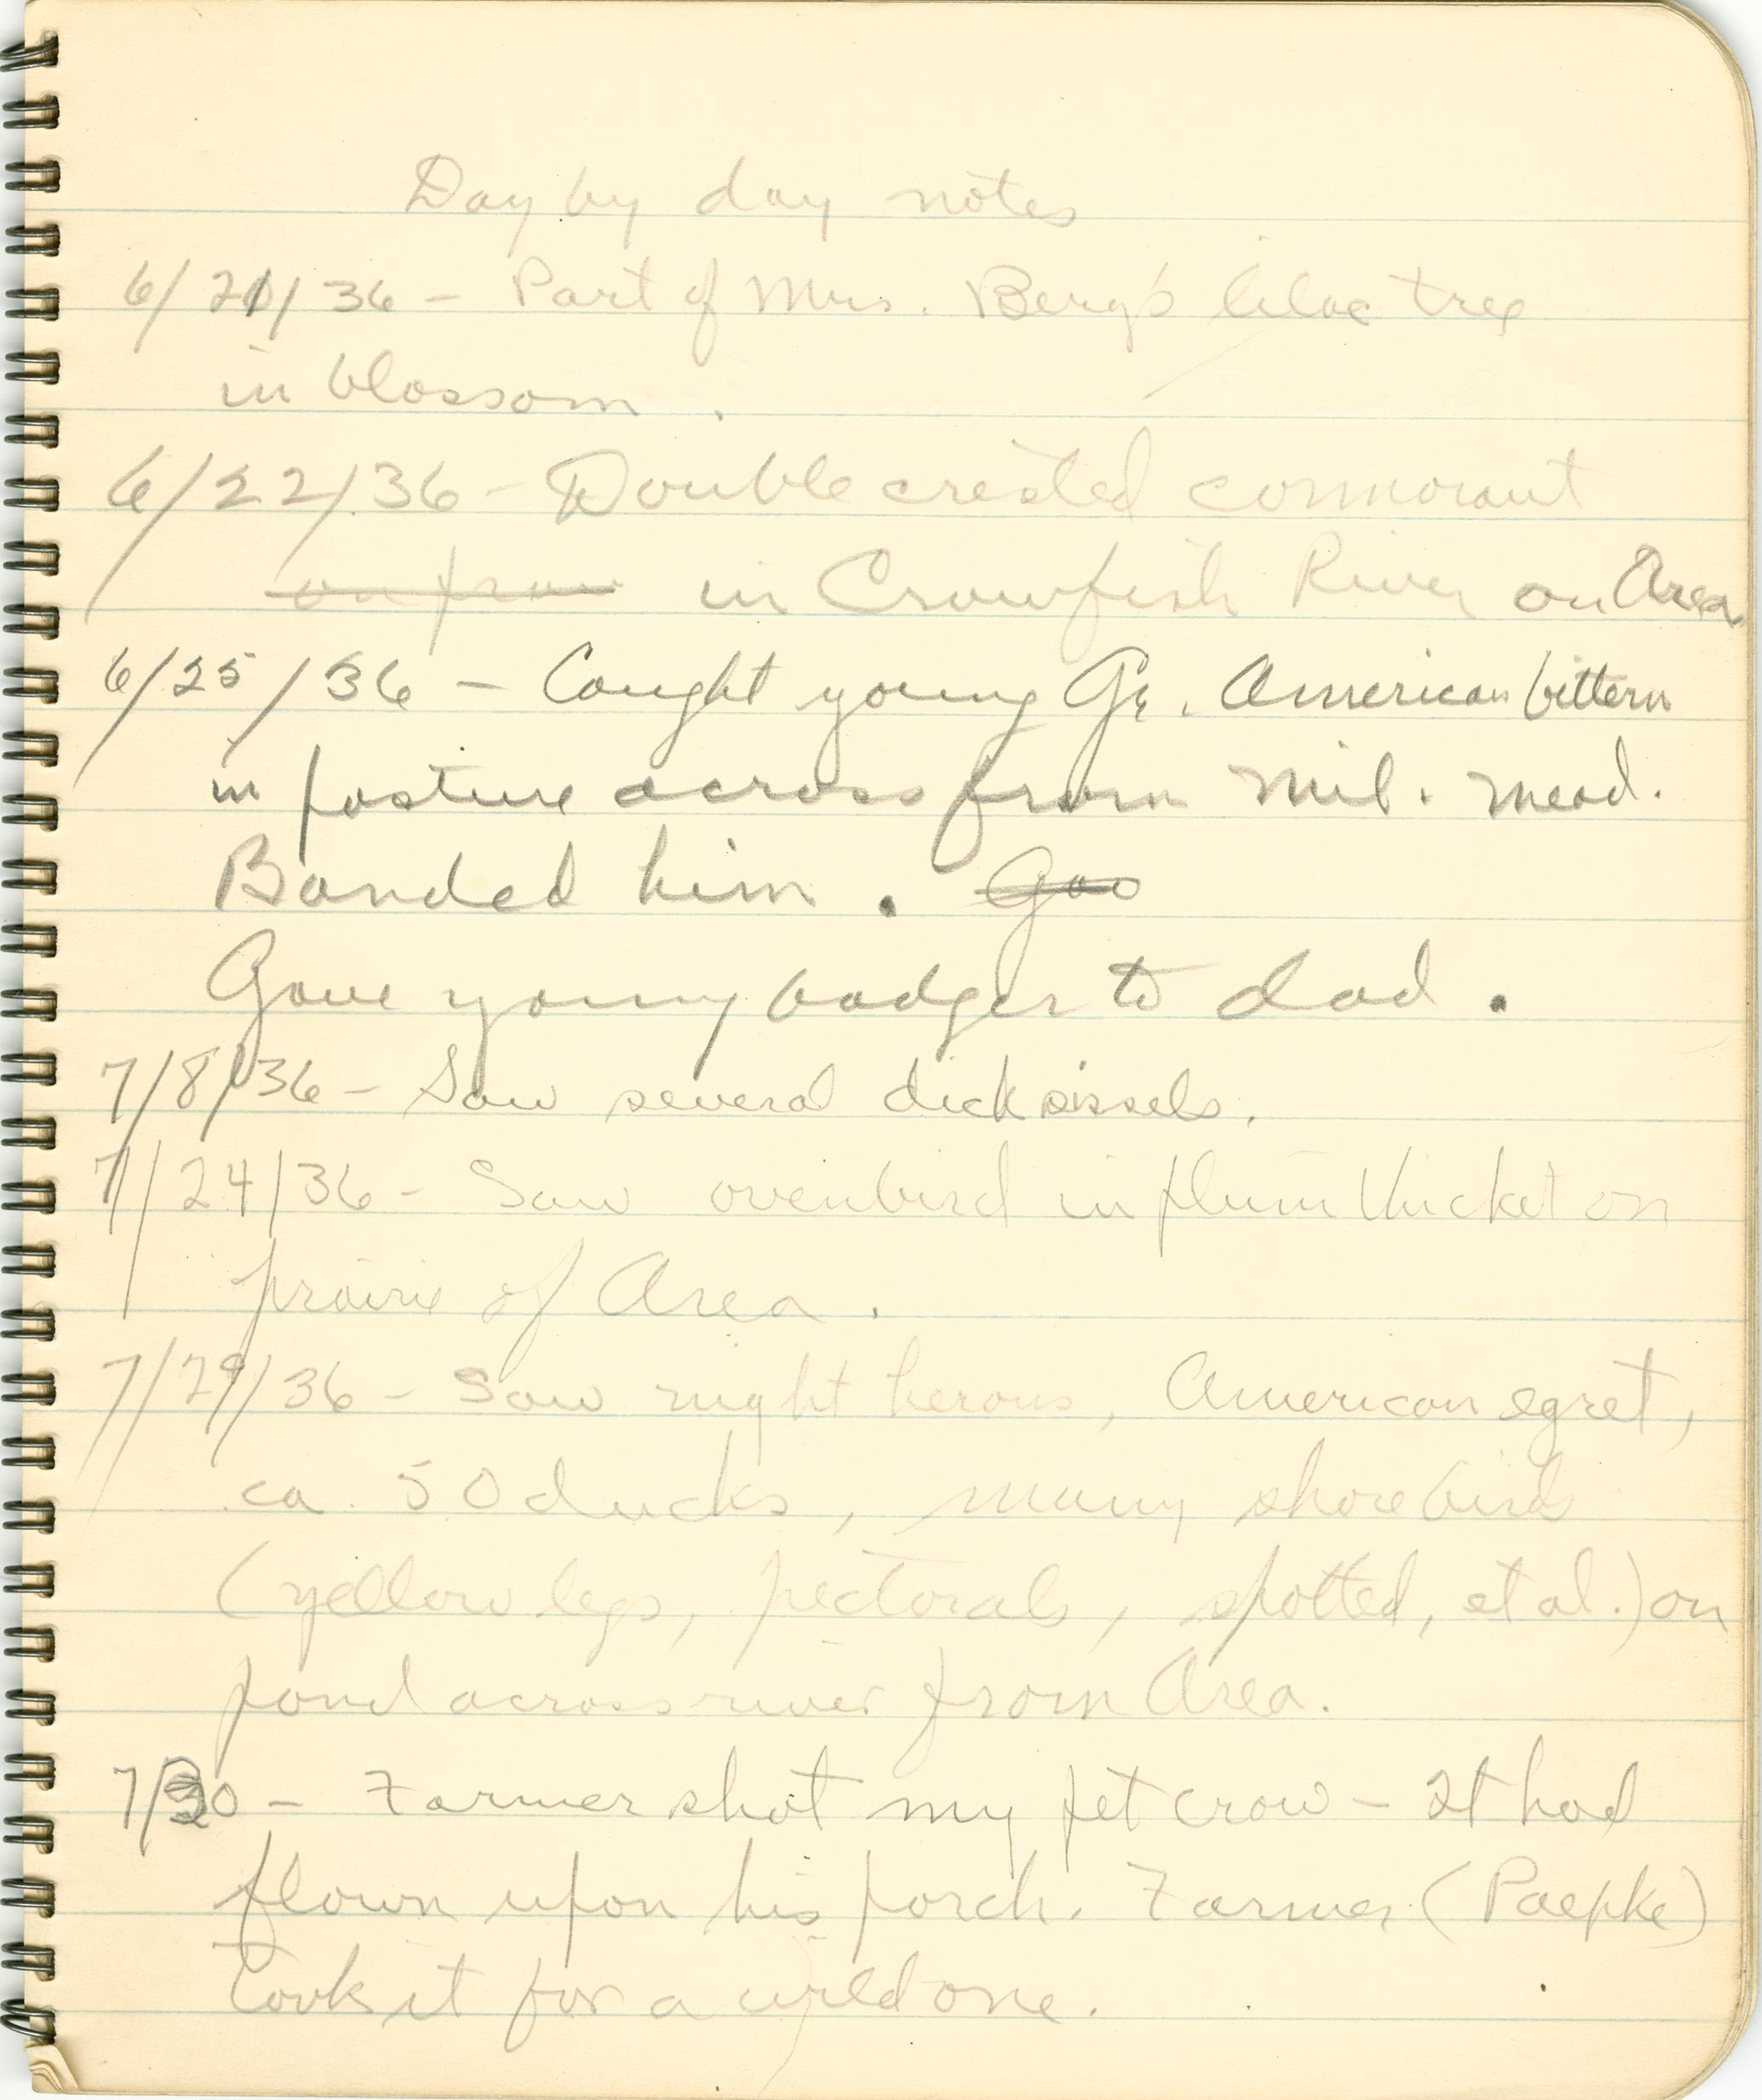 Day by day notes
6/21/36 - Part of Mrs. Berg's lilac tree
in blossom.
6/22/36 - Double crested cormorant
in Crawfish River on Area
6/25/36 - Caught young Gr. American bittern
in pasture across from Mil. Mead.
Banded him. Gao
Gave young badger to dad.
7/8/36 - Saw several dicksissels.
7/24/36 - Saw ovenbird in plum thicket on
prairie of Area.
7/29/36 - Saw night herons, American egret,
ca. 50 ducks, many shore birds
(yellow legs, pectorals, spotted, et al.) on
pond across river from Area.
7/30 - Farmer shot my pet crow - It had
flown upon his porch. Farmer (Paepke)
Took it for a wild one.